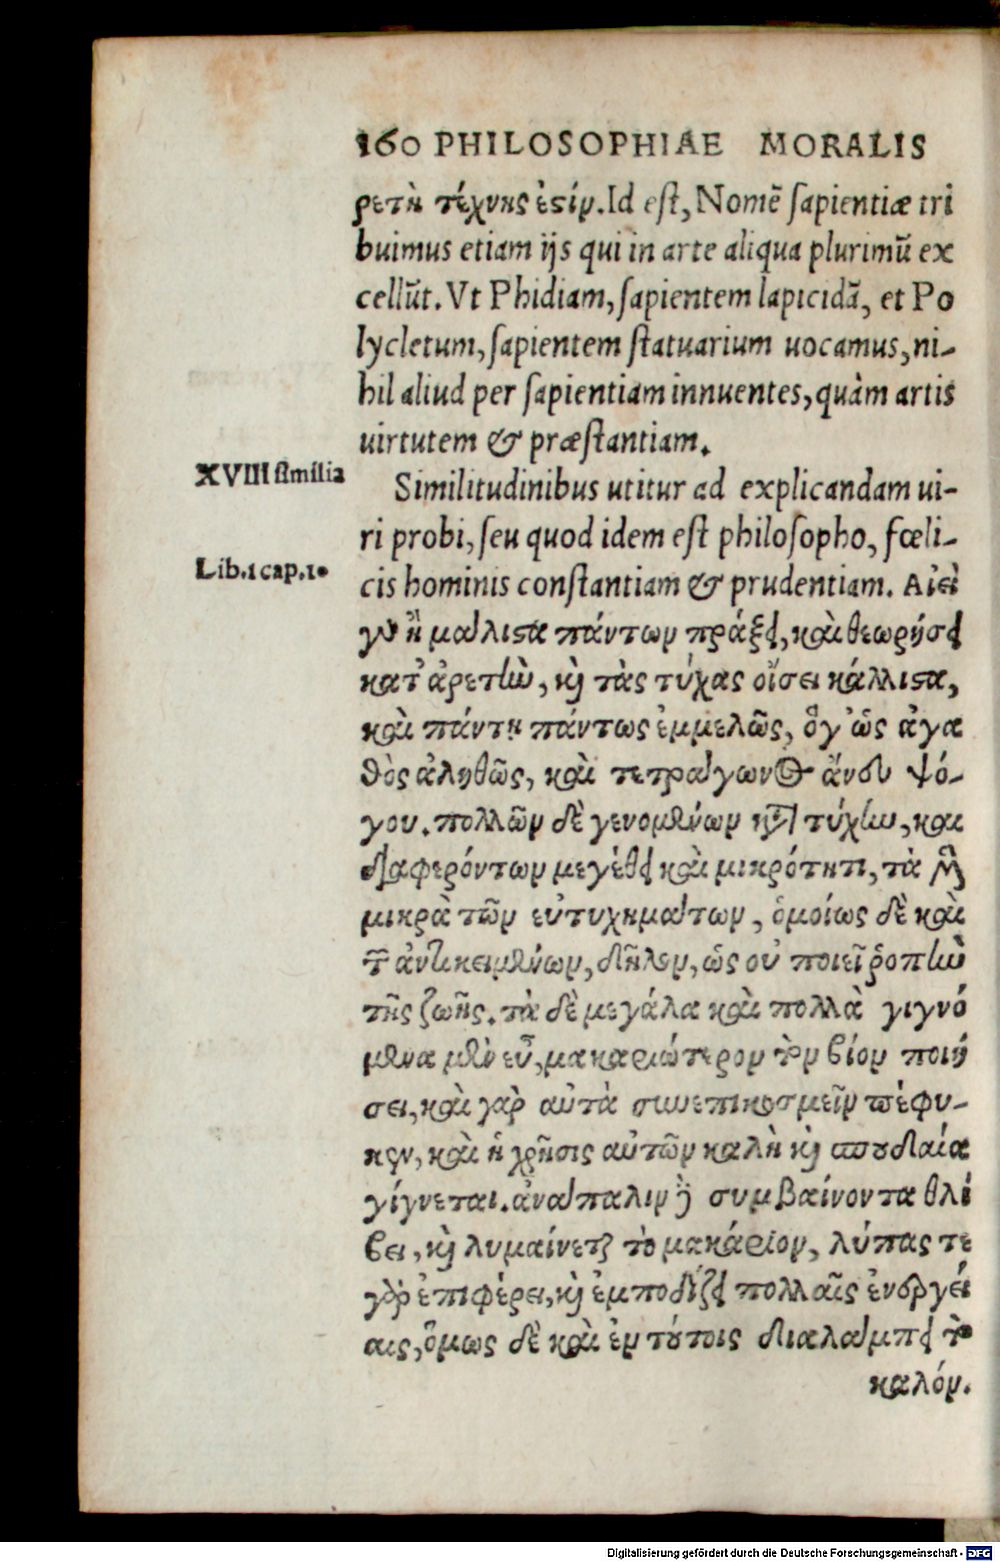 160 PHILOSOPHIAE MORALIS
ρετὴ τέχνης ἐςίν. Id est, Nomẽ sapientiæ tri
buimus etiam ijs qui in arte aliqua plurimũ ex
cellũt. Vt Phidiam, sapientem lapicidã, et Po
lycletum, sapientem statuarium uocamus, ni-
hil aliud per sapientiam innuentes, quàm artis
uirtutem & præstantiam.
XVIII similia
Similitudinibus utitur ad explicandam ui-
ri probi, seu quod idem est philosopho, fœli-
Lib.1 cap.1.
cis hominis constantiam & prudentiam. Αἰεὶ
γὸ ἢ μάλιςα πάντων πράξει, καὶ θεωρήσει
κατ' ἀρετὴν, κὶ τὰς τύχας οἴσει κάλλιςα,
καὶ πάντη πάντως ἐμμελῶς, ὅγ' ὡς ἀγα
θὸς ἀληθῶς, καὶ τετράγωνος ἄνευ ψό-
γου. πολλῶν δὲ γενομένων κατὰ τύχην, καὶ
διαφερόντων μεγέθει καὶ μικρότητι, τὰ μὲν
μικρὰ τῶν εὐτυχημάτων, ὁμοίως δὲ καὶ
τῶν ἀντικειμένων, δῆλον, ὡς οὐ ποιεῖ ῥοπὴν
τῆς ζωῆς. τὰ δὲ μεγάλα καὶ πολλὰ γιγνό
μενα μὲν εὖ, μακαριώτερον τὸν βίον ποιή
σει, καὶ γὰρ αὐτὰ συνεπικοσμεῖν πέφυ-
κεν, καὶ ἡ χρῆσις αὐτῶν καλὴ κὶ σπουδαία
γίγνεται. ἀνάπαλιν δὲ συμβαίνοντα θλί
βει, κὶ λυμαίνεται τὸ μακάριον, λύπας τε
γὰρ ἐπιφέρει, κὶ ἐμποδίζει πολλαῖς ἐνεργεί
αις, ὅμως δὲ καὶ ἐν τούτοις διαλάμπει τὸ
καλόν.
Digitalisierung gefördert durch die Deutsche Forschungsgemeinschaft - DFG